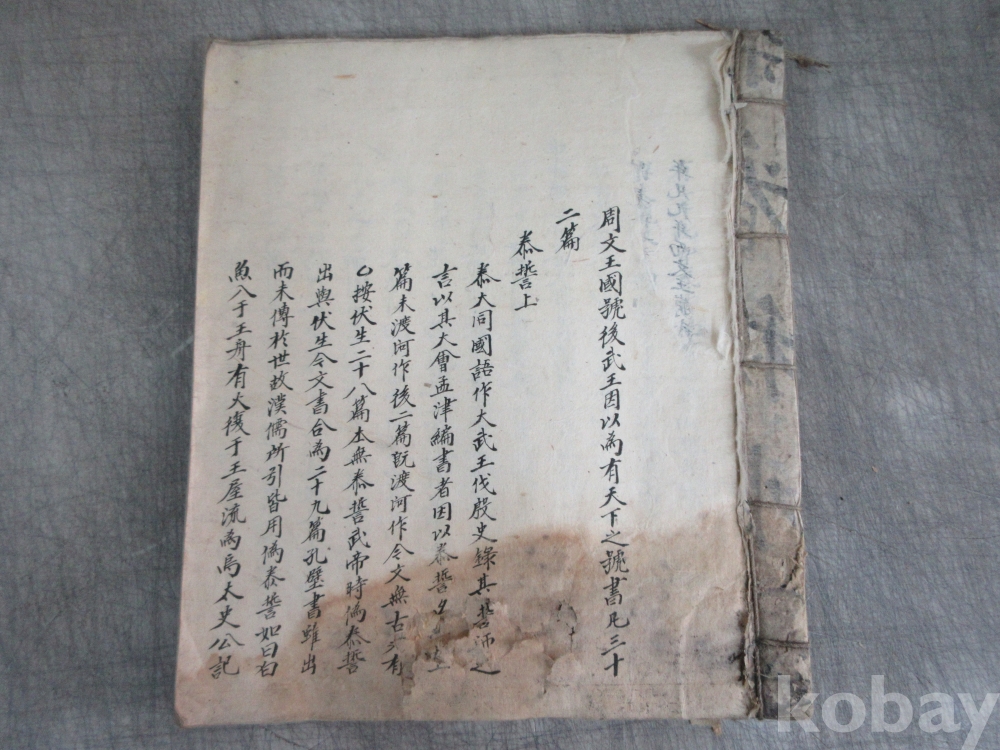 周文王國號後武王因以為有天下之號書凡三十
二篇
泰誓上
泰大同國語作大武王伐殷史錄其誓師之
言以其大會孟津編書者因以泰誓名
篇未渡河作後二篇既渡河作今文無古文有
○按伏生二十八篇本無泰誓武帝時偽泰誓
出與伏生今文書合為二十九篇孔壁書雖出
而未傳於世故漢儒所引皆用偽泰誓如曰白
魚入于王舟有火復于王屋流為烏太史公記
kobay